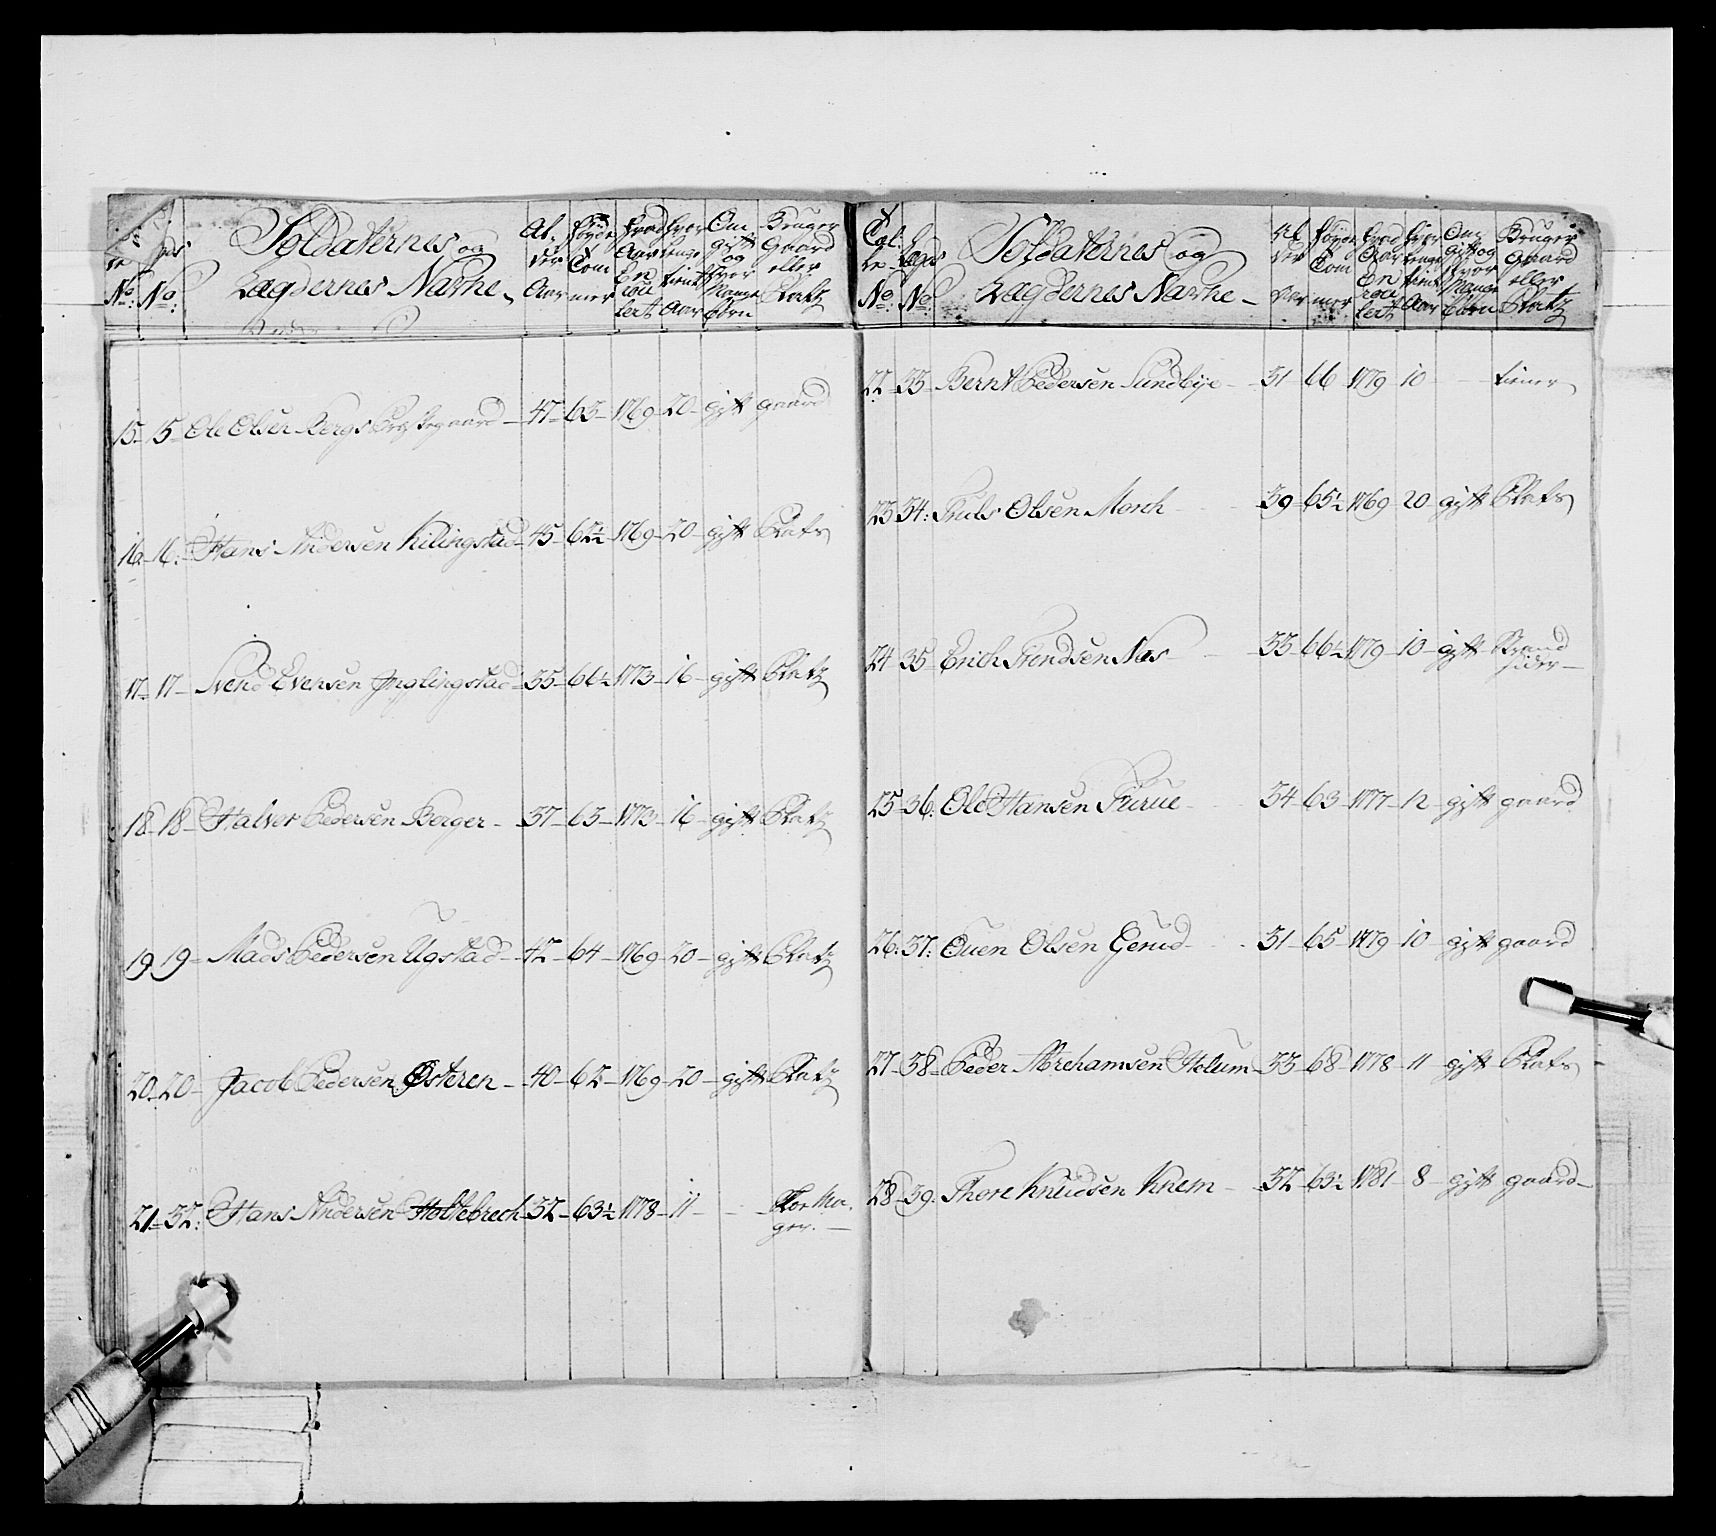 No: No: Soldaternes og Lægdernes Navne Al der Aar Høyde Tom mer Hvad Aar En rou lert Hvor længe tient Aar Om gift og hvor Mange børn Bruger Gaard eller Platz
15 15 Ole Olsen Bergs Præstegaard 47 63 1769 20 gift gaard
16 16: Hans Andersen Kilingstad 45 62½ 1769 20 gift Plats
17 17 Svend Evensen Inglingstad 35 66½ 1773 16 gift Platz
18 18 Halvor Pedersen Berger 37 63 1773 16 gift Platz
19 19 Mads Pedersen Ugstad 42 64 1769 20 gift Platz
20 20 Jacob Pedersen Østeren 40 62 1769 20 gift Platz
21 32: Hans Andersen Holtebrech 32 63½ 1778 11
No: Lægds No: Soldaternes og Lægdernes Navne Al der Aar Høyde Tom mer Hvad Aar En rou lert Hvor længe tient Aar Om gift og hvor Mange børn Bruger gaard eller Platz
22 33 Bernt Pedersen Sundbye 31 66 1779 10 tiener
23 34: Truls Olsen Morch 39 65½ 1769 20 gift Plats
24 35 Erich Trondsen Næs 33 66½ 1779 10 gift Strand
sidder
25 36: Ole Hansen Furue 34 63 1777 12 gift gaard
26: 37: Ouen Olsen Gerud 31 65 1779 10 gift gaard
27 38 Peder Abrehamsen Holum 33 68 1778 11 gift Plats
28 39: Thore Knudsen Knem 32 63½ 1781 8 gift gaard